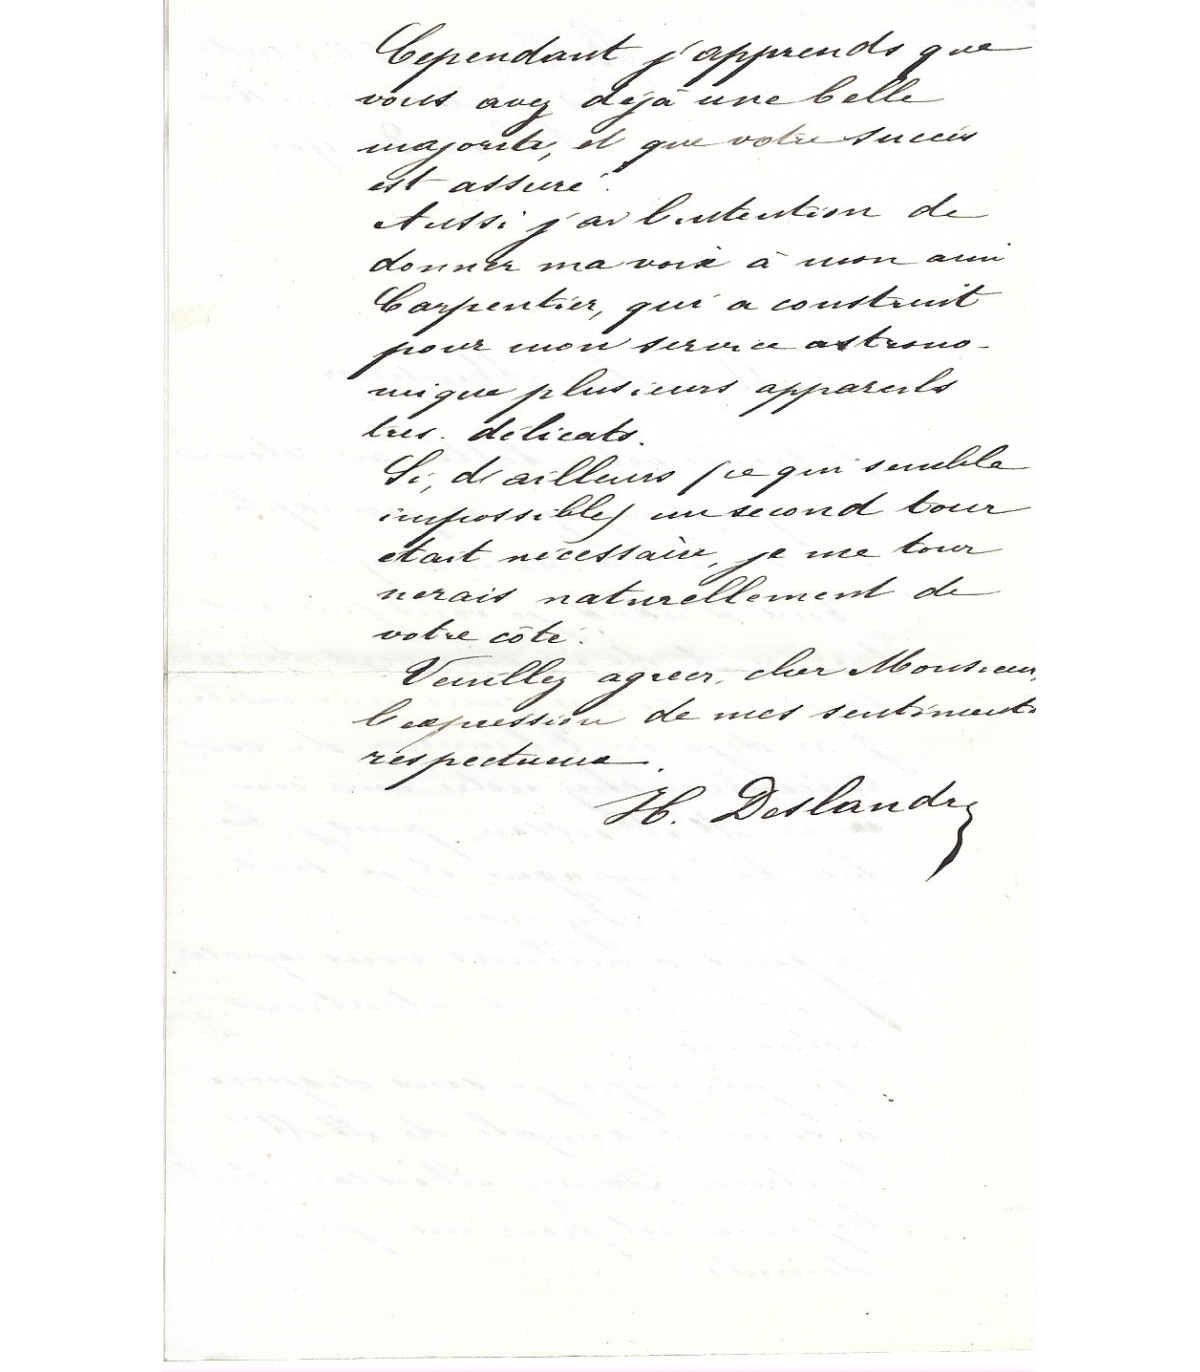 Cependant j'apprends que
vous avez déjà une belle
majorité, et que votre succès
est assuré.
Aussi j'ai l'intention de
donner ma voix à mon ami
Carpentier, qui a construit
pour mon service astrono-
mique plusieurs appareils
très délicats.
Si, d'ailleurs (ce qui semble
impossible) un second tour
était nécessaire, je me tour
nerais naturellement de
votre côté.
Veuillez agréer, cher Monsieur,
l'expression de mes sentiments
respectueux.
H. Deslandres